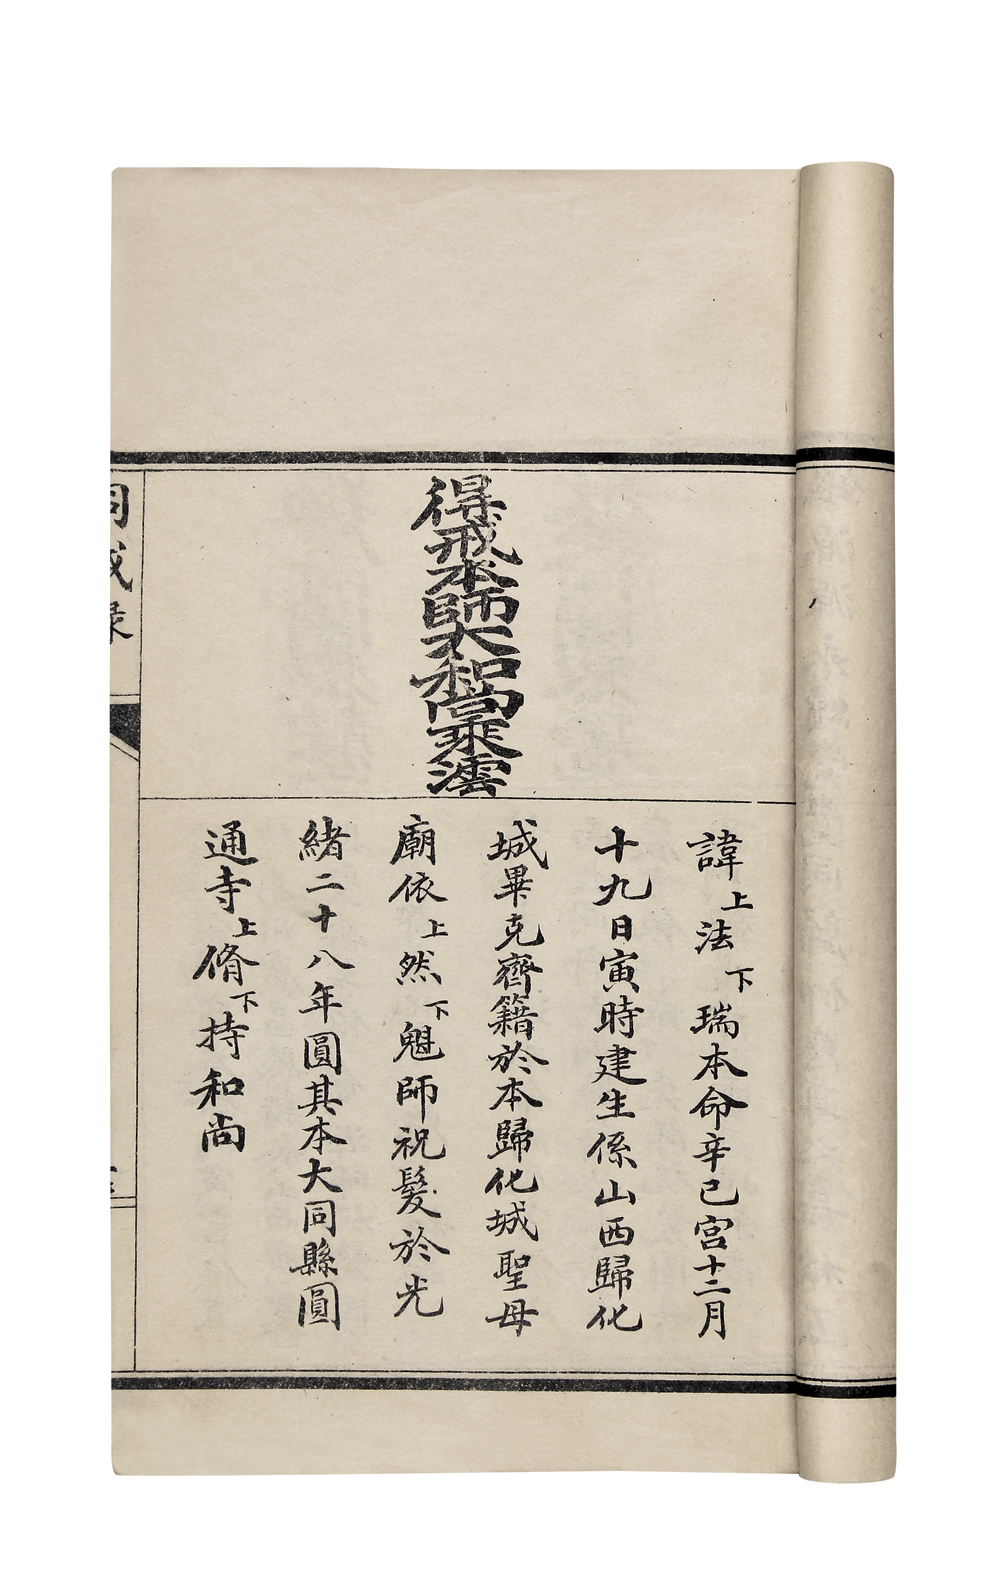 得戒本師大和尚乘澐
諱上法下瑞本命辛巳宮十二月
十九日寅時建生係山西歸化
城畢克齊籍於本歸化城聖母
廟依上然下魁師祝髮於光
緒二十八年圓其本大同縣圓
通寺上脩下持和尚
同戒录